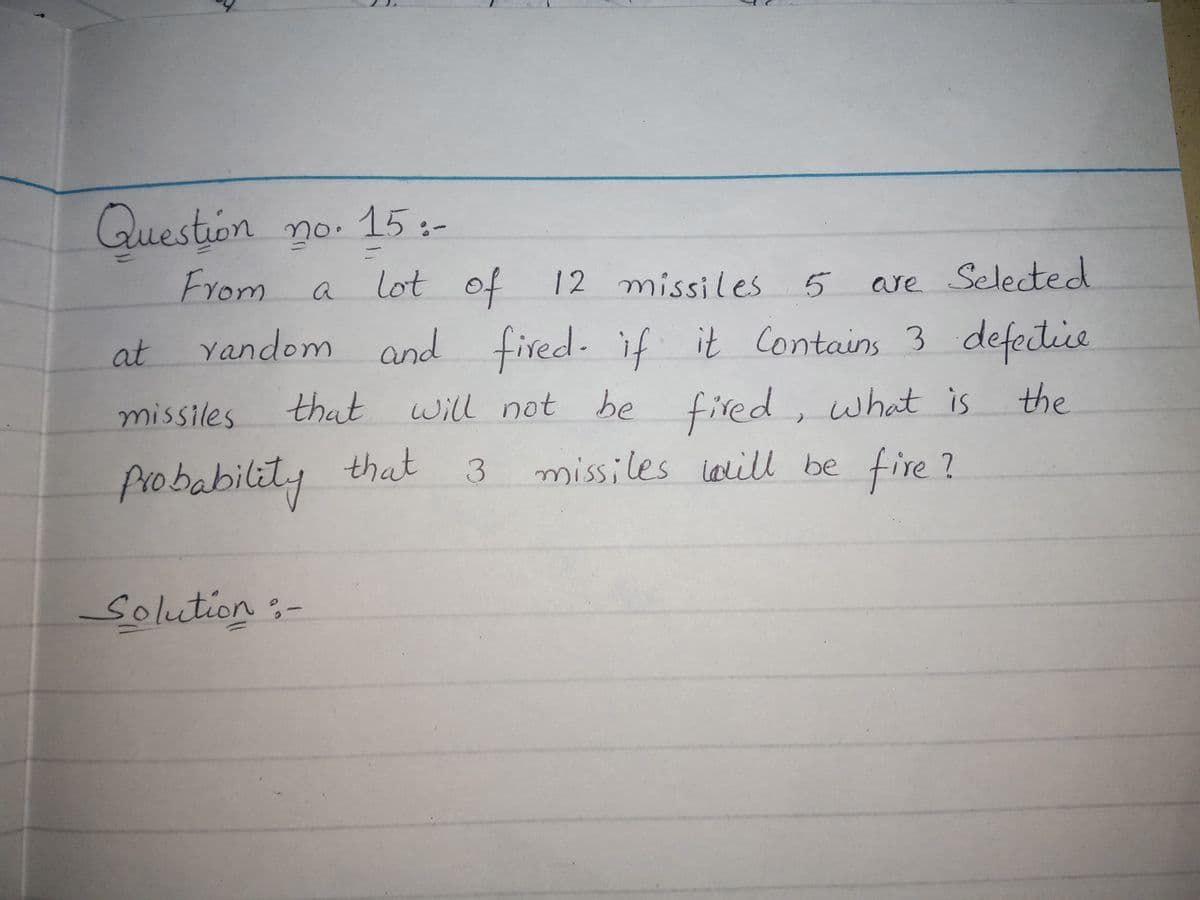 Question no. 15 :-
From a lot of 12 missiles 5 are Selected
at random and fired. if it Contains 3 defective
missiles that will not be fired, what is the
Probability that 3 missiles will be fire?
Solution :-